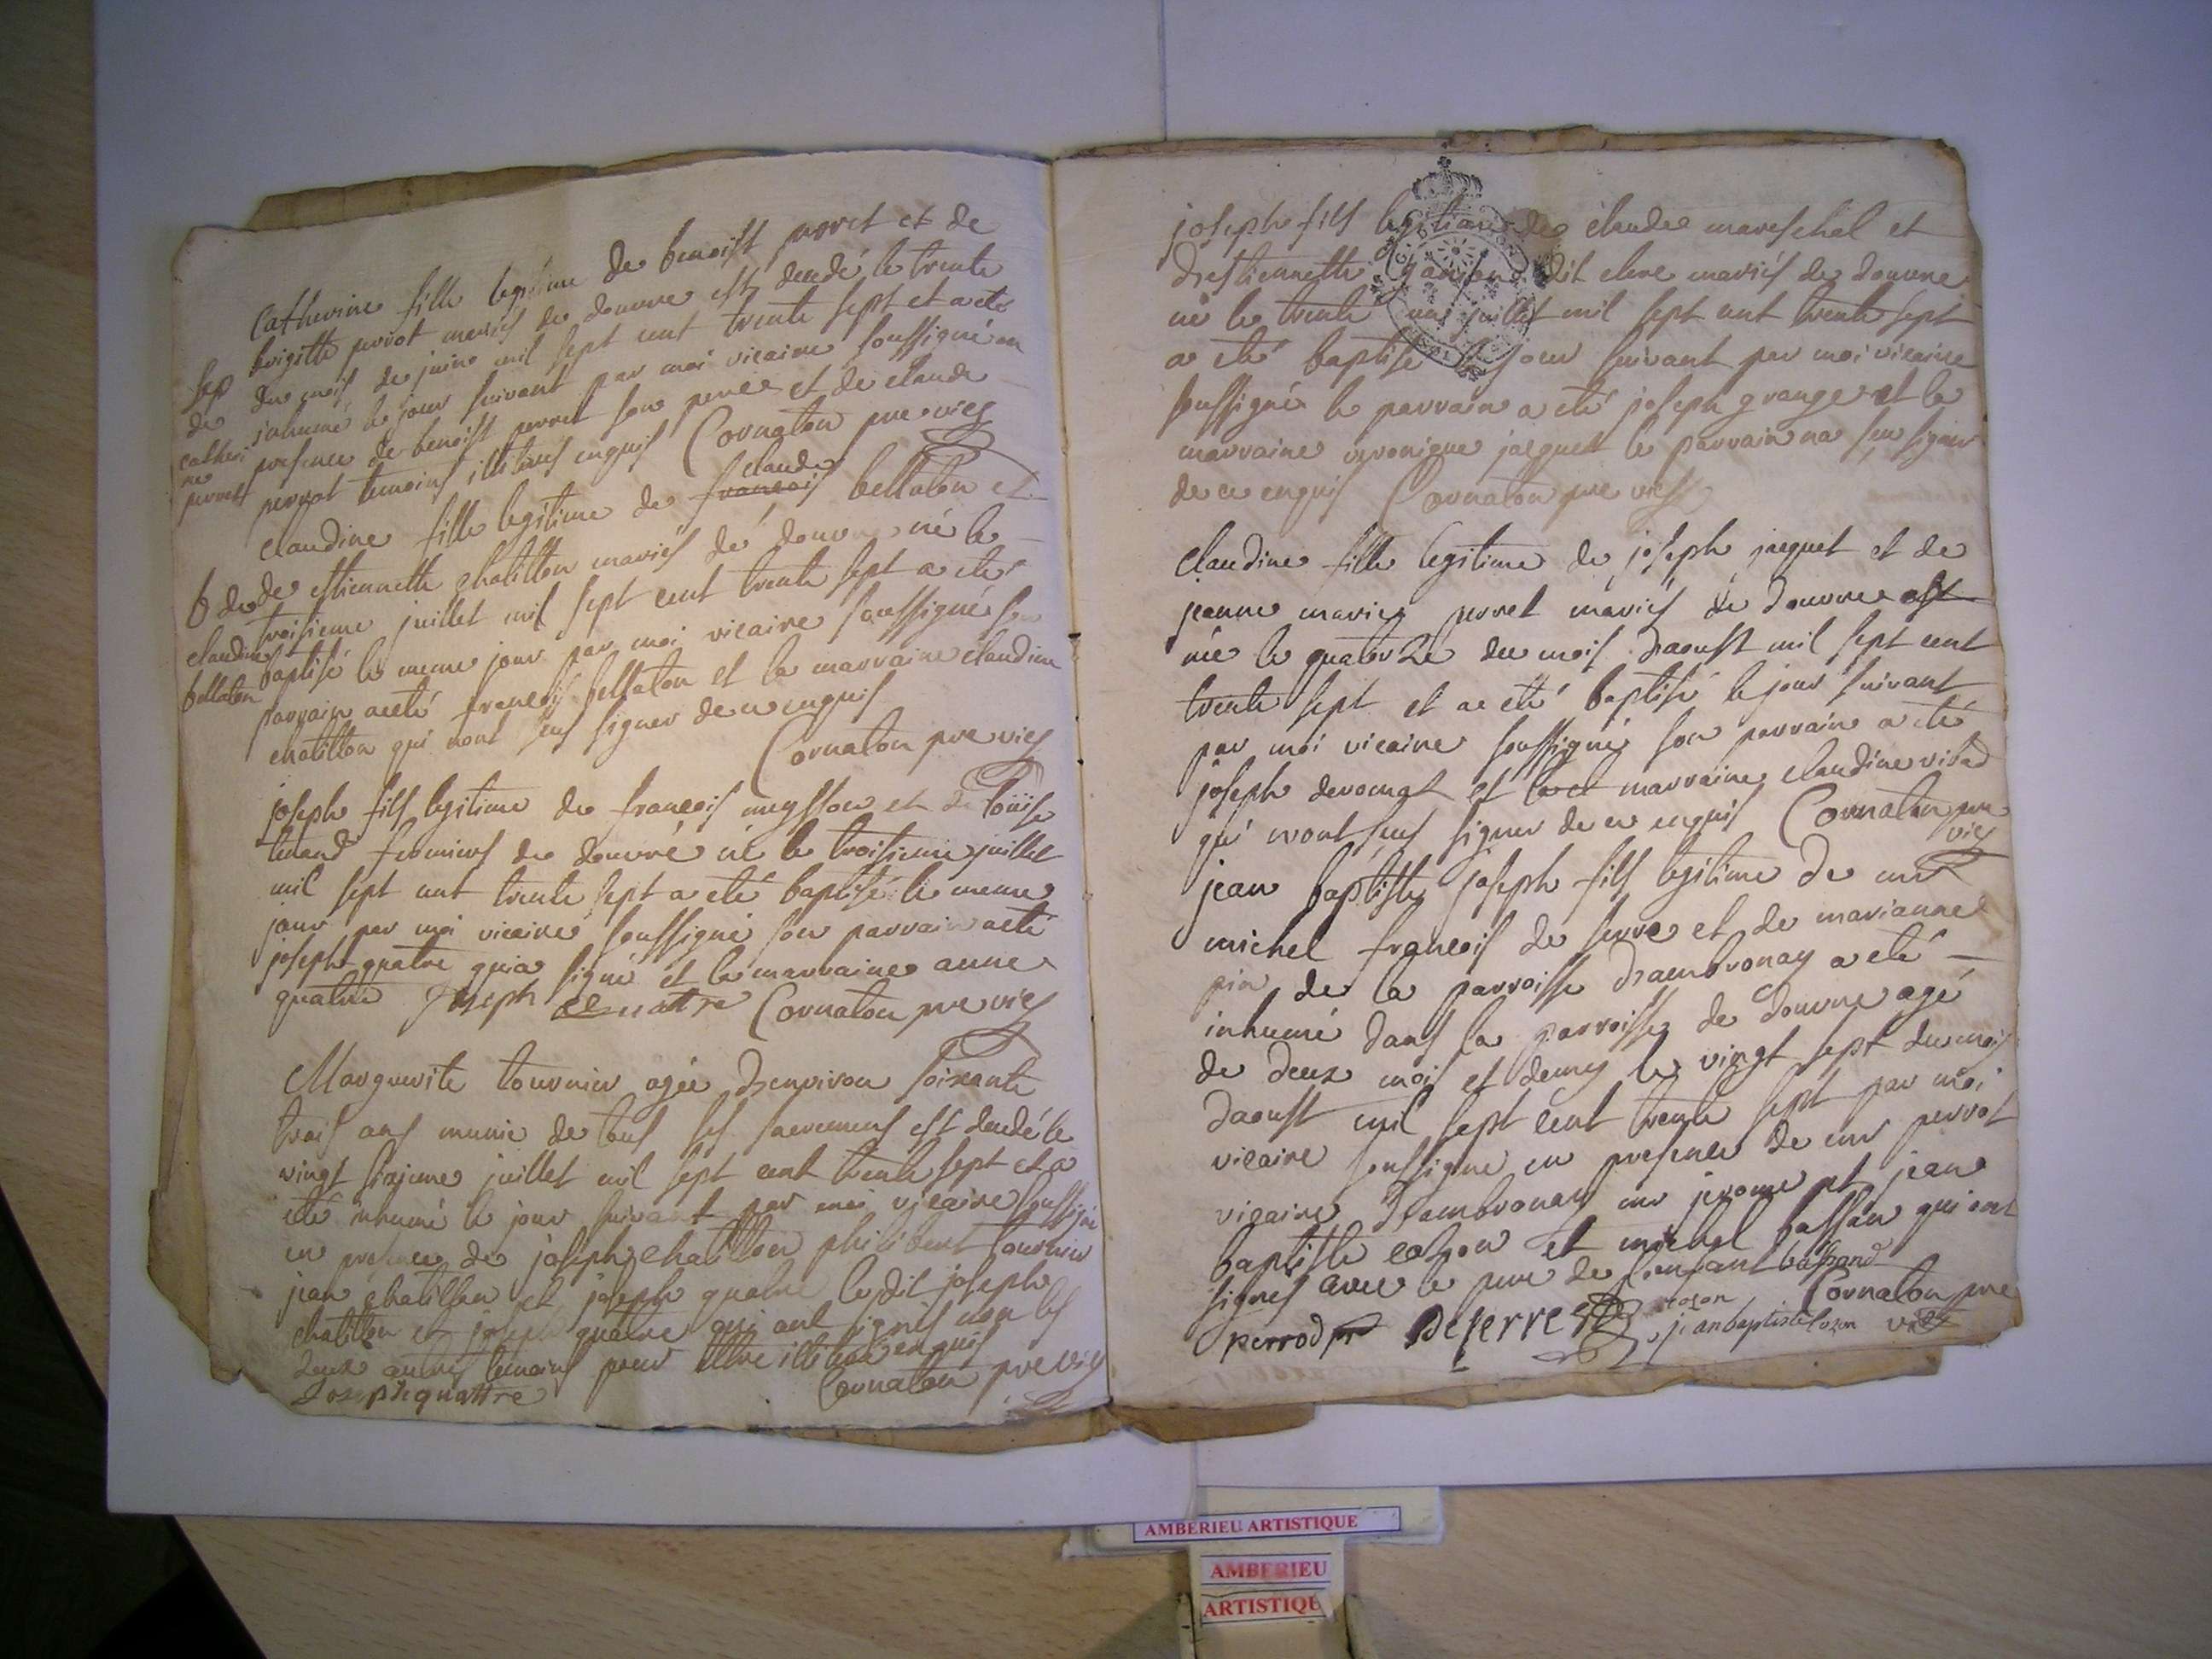 Catherine fille legitime de benoist perret et de
brigitte perrot mariés de douvre est dendé le trente
du mois de juin mil sept cent trente sept et a eté
inhumé le jour suivant par moi vicaire soussigné en
presence de benoist perret son pere et de claude
perrot temoins illiteres enquis Cornaton pre vic
sep
de
catheri
ne
perret
claude
claudine fille legitime de francois bellaton et
de estiennette chatillon mariés de douvre né le
troisieme juillet mil sept cent trente sept a eté
baptisé le meme jour par moi vicaire soussigné son
parrain a eté francois bellaton et la marraine claudine
chatillon qui nont sçus signer de ce enquis
Cornaton pre vic
b de
claudine
bellaton
joseph fils legitime de francois meysson et de loüise
tenand fermiers de douvre né le troisieme juillet
mil sept cent trente sept a eté baptisé le meme
jour par moi vicaire soussigné son parrain a eté
joseph quatre qui a signé et la marraine anne
quatre Joseph quattre Cornaton pre vic
Marguerite tournier agée d'environ soixante
trois ans munie de tous ses sacremens est dendé le
vingt sixieme juillet mil sept cent trente sept et a
eté inhumé le jour suivant par moi vicaire soussigné
en presence de joseph chatillon philibert tournier
jean chatillon et joseph quatre lesdit joseph
chatillon et joseph quatre qui ont signés non les
deux autres temoins pour etre illiteré enquis
Joseph quattre Cornaton pre vic
joseph fils legitime de claude mareschal et
d'estiennette dit clerc mariés de douvre
né le trente un juillet mil sept cent trente sept
a eté baptisé le jour suivant par moi vicaire
soussigné le parrain a eté joseph granger et la
marraine veronique jacquet le parrain na sçu signer
de ce enquis Cornaton pre vic
Claudine fille legitime de joseph jacquet et de
jeanne marie perret mariés de douvre est
née le quatorze du mois d'aoust mil sept cent
trente sept et a eté baptisé le jour suivant
par moi vicaire soussigné son parrain a eté
joseph et la marraine claudine
qui nont sçus signer de ce enquis Cornaton pre
vic
jean baptiste joseph fils legitime de mr
michel francois de serre et de marianne
pin de la parroisse d'ambronay a eté
inhumé dans la parroisse de douvre agé
de deux mois et demy le vingt sept du mois
d'aoust mil sept cent trente sept par moi
vicaire soussigne en presence de mr perrot
vicaire d'ambronay mr jerome et jean
baptiste cozon et michel bassan qui ont
signés avec le pere de l'enfant bassand
cozon Cornaton pre
perrod ptr Deserre jeanbaptiste cozon vic
AMBERIEU ARTISTIQUE
AMBERIEU
ARTISTIQUE